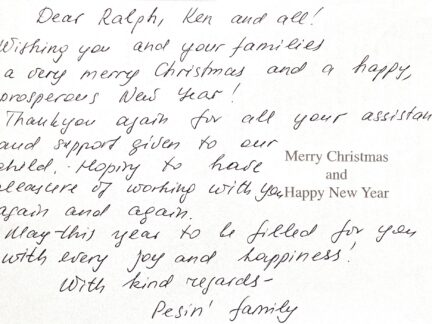 Dear Ralph, Ken and all!
Wishing you and your families
a very merry Christmas and a happy,
prosperous New Year!
Thankyou again for all your assistan
and support given to our
child. Hoping to have
pleasure of working with you
again and again.
May this year to be filled for you
with every joy and happiness!
With kind regards-
Pesin' family
Merry Christmas
and
Happy New Year